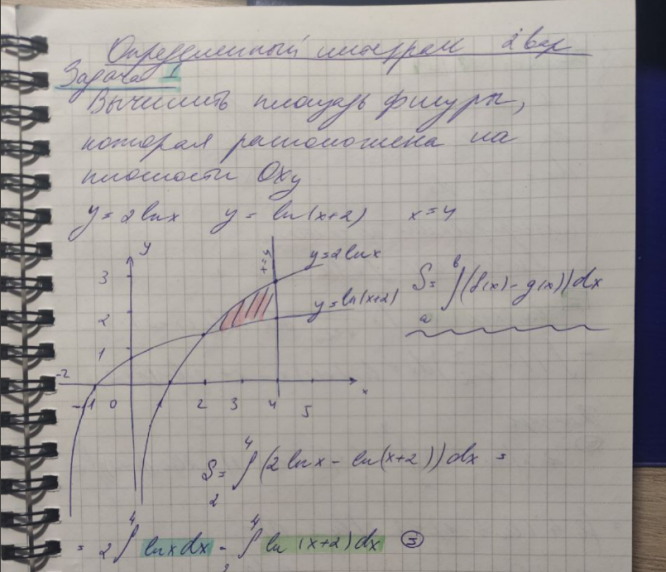 Определенный интеграл 2 вар
Задача 1
Вычислить площадь фигуры,
которая расположена на
плоскости Oxy
y = 2lnx y = ln(x+2) x=4
y
3
2
1
-2
-1 0 2 3 4 5
x
x=4
y=2lnx
y=ln(x+2)
S = ∫ₐᵇ (f(x) - g(x))dx
S = ∫₂⁴ (2lnx - ln(x+2))dx =
= 2∫⁴ lnxdx - ∫₂⁴ ln(x+2)dx ⊜